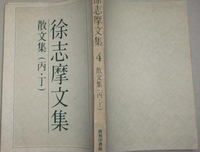 徐志摩文集
散文集(丙·丁)
徐志摩文集
4
散文集(丙·丁)